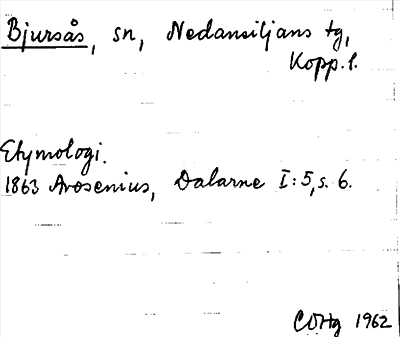 Bjursås, sn, Nedansiljans tg,
Kopp. l.
Etymologi.
1863 Arosenius, Dalarne I:5, s. 6.
COHg 1962